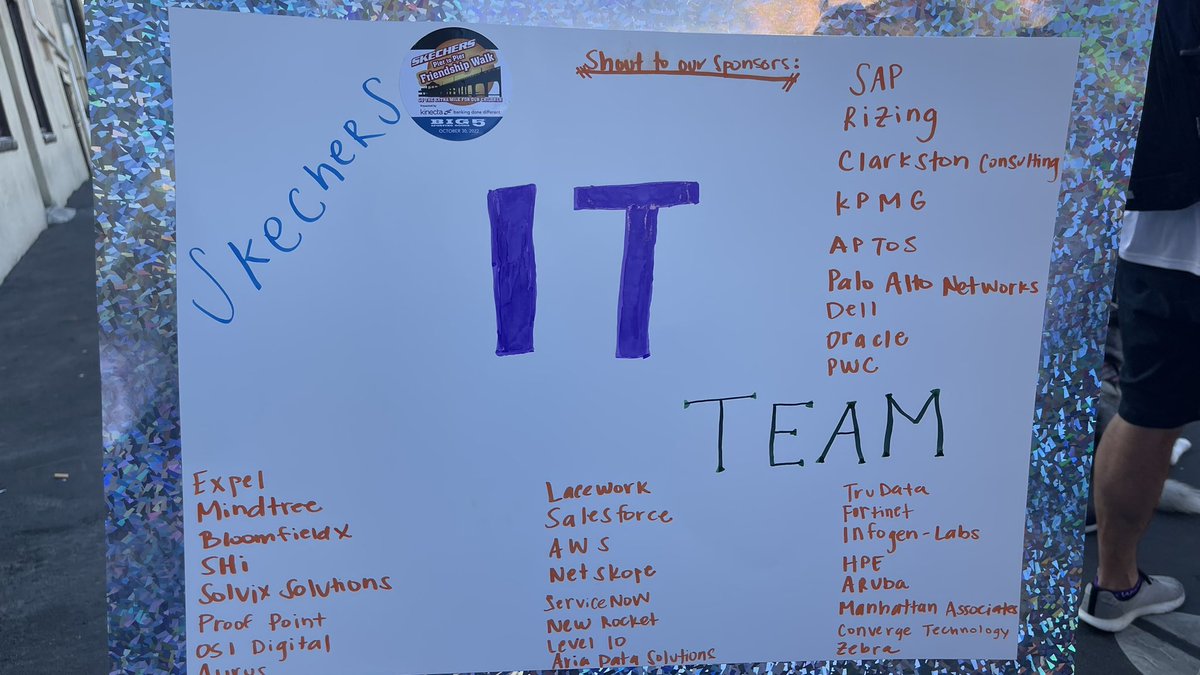 Skechers
SKECHERS
Pier to Pier
Friendship Walk
kinecta banking done different
BIG 5
OCTOBER 30, 2022
Shout to our Sponsors:
SAP
Rizing
Clarkston Consulting
KPMG
APTOS
Palo Alto Networks
Dell
Oracle
PWC
IT
TEAM
Expel
Mindtree
Bloomfieldx
SHi
Solvix Solutions
Proof Point
OSI Digital
Aurus
Lacework
Salesforce
AWS
Netskope
ServiceNow
New Rocket
Level 10
Aria Data Solutions
TruData
Fortinet
Infogen-Labs
HPE
Aruba
Manhattan Associates
Converge Technology
Zebra